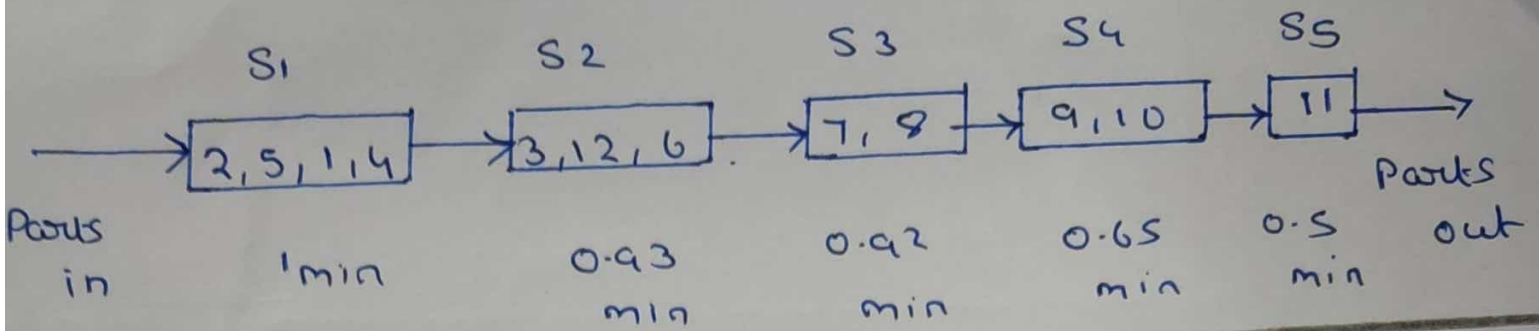 S1 S2 S3 S4 S5
2,5,1,4 3,12,6 7,8 9,10 11
Parts in 1min 0.93 min 0.92 min 0.65 min 0.5 min Parts out